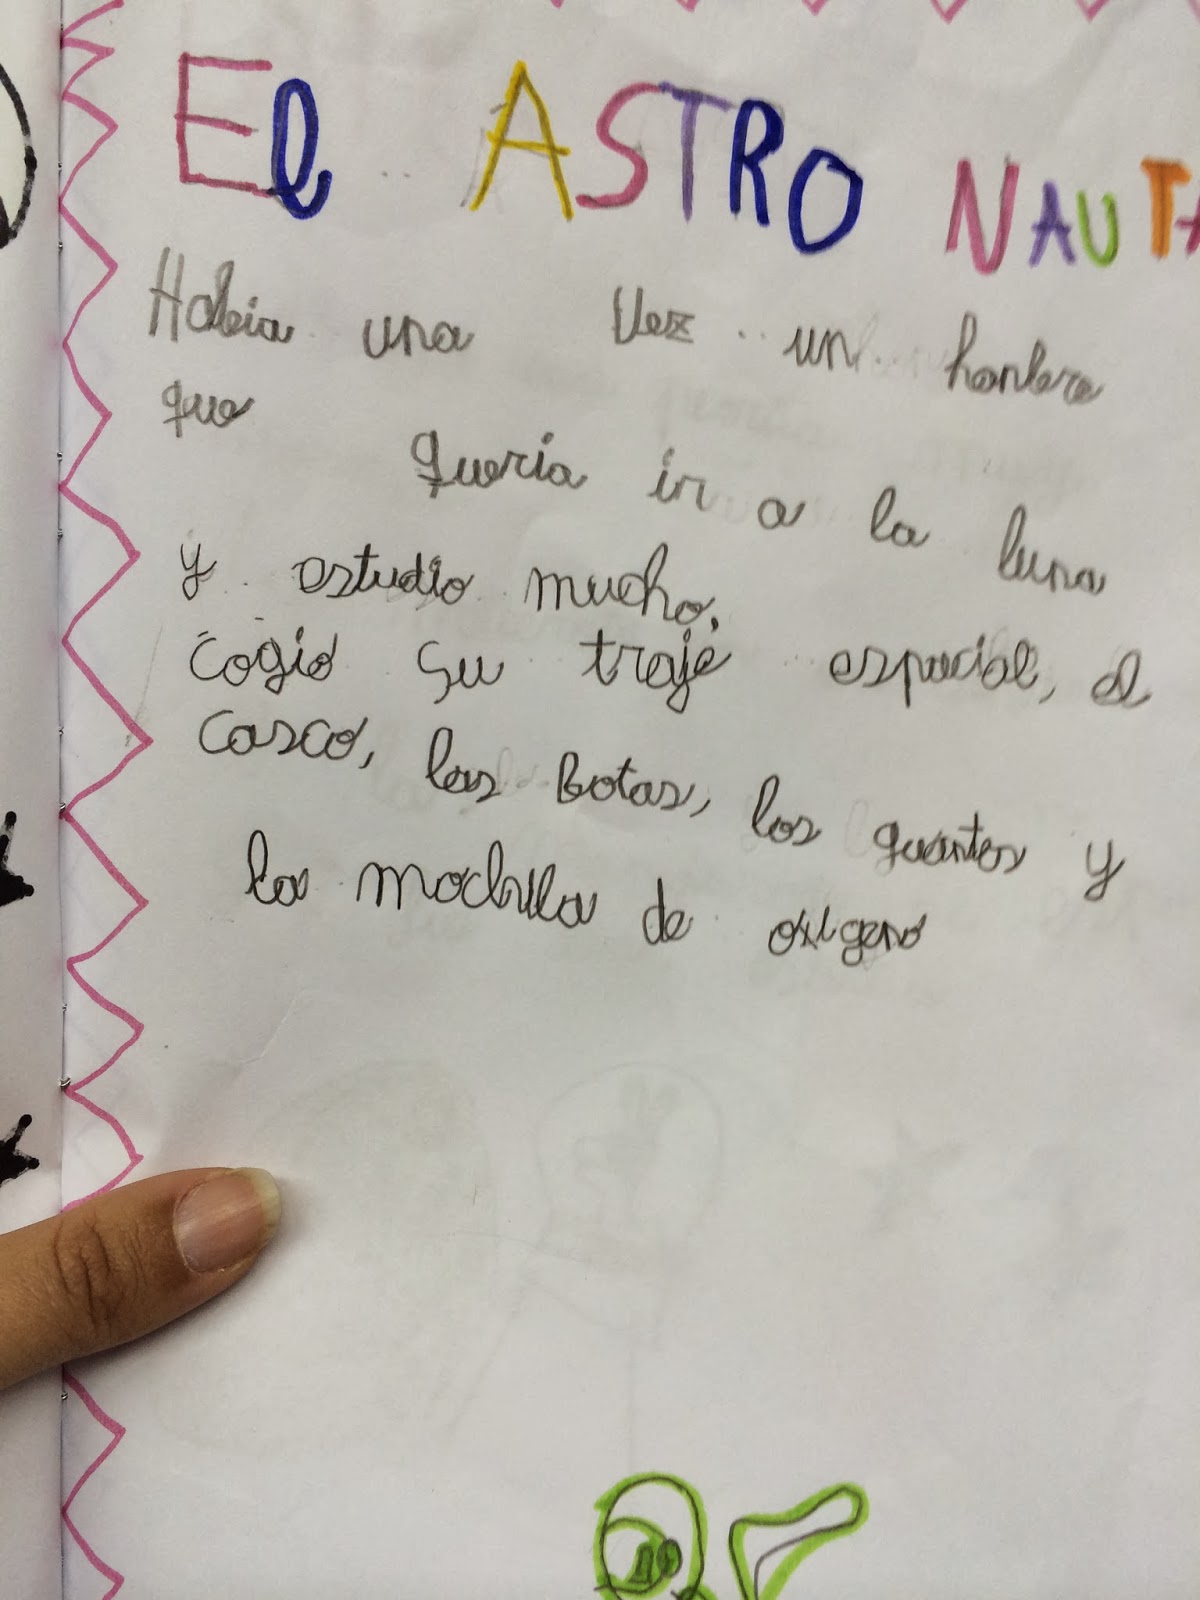 El ASTRO NAUTA
Habia una vez un honbre
que queria ir a la luna
y estudio mucho,
cogio su traje espacial, el
casco, las botas, los guantes y
la mochila de oxigeno